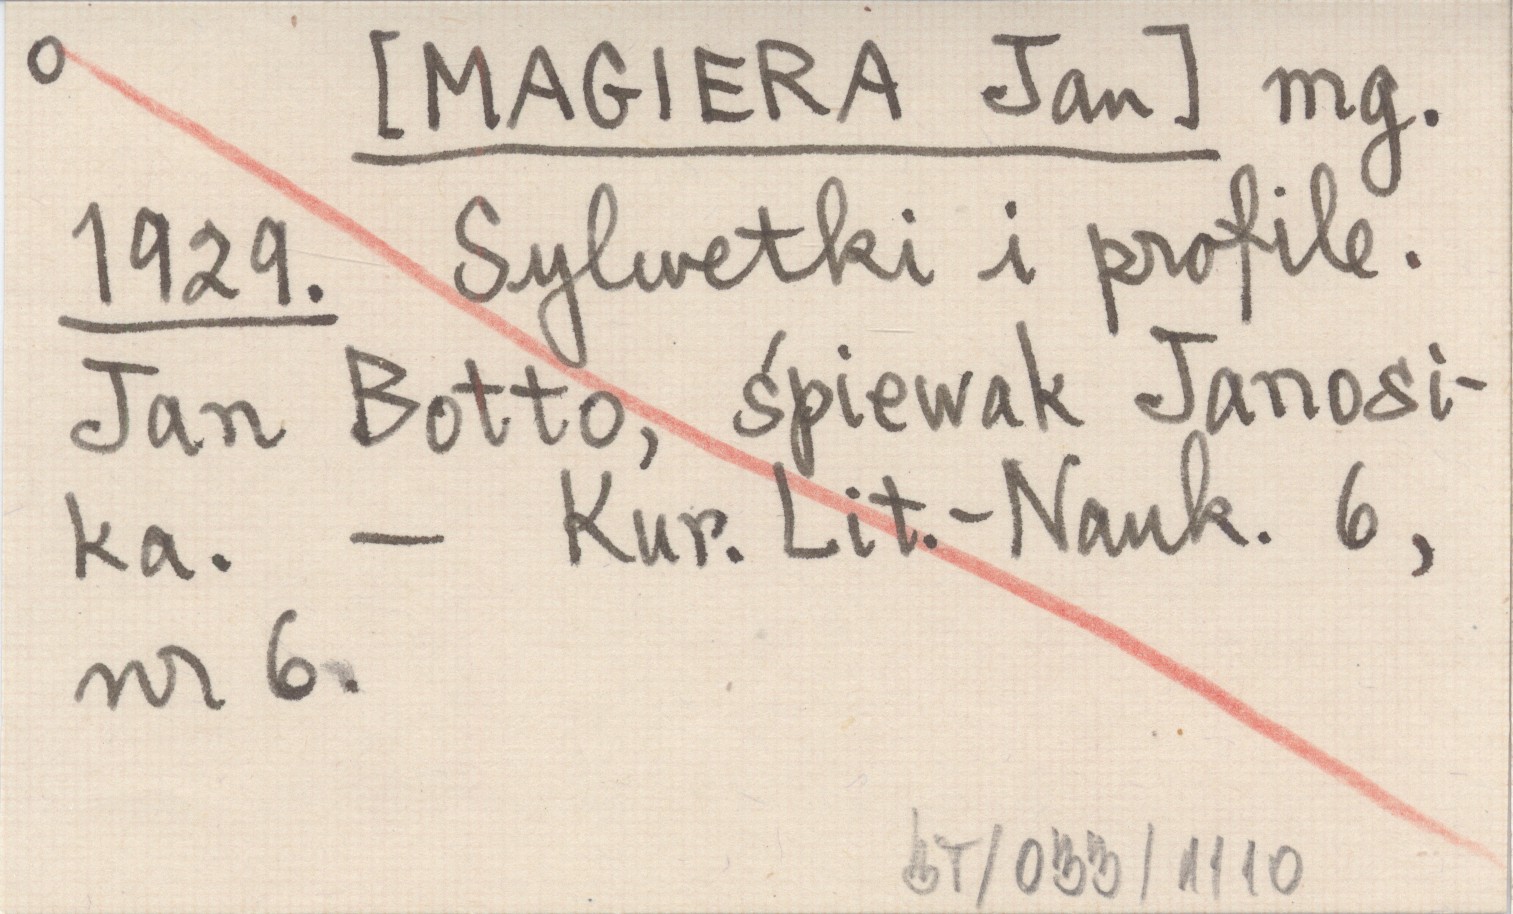 o [MAGIERA Jan] mg.
1929. Sylwetki i profile.
Jan Botto, śpiewak Janosi-
ka. — Kur. Lit.-Nauk. 6,
nr 6.
/033/1110